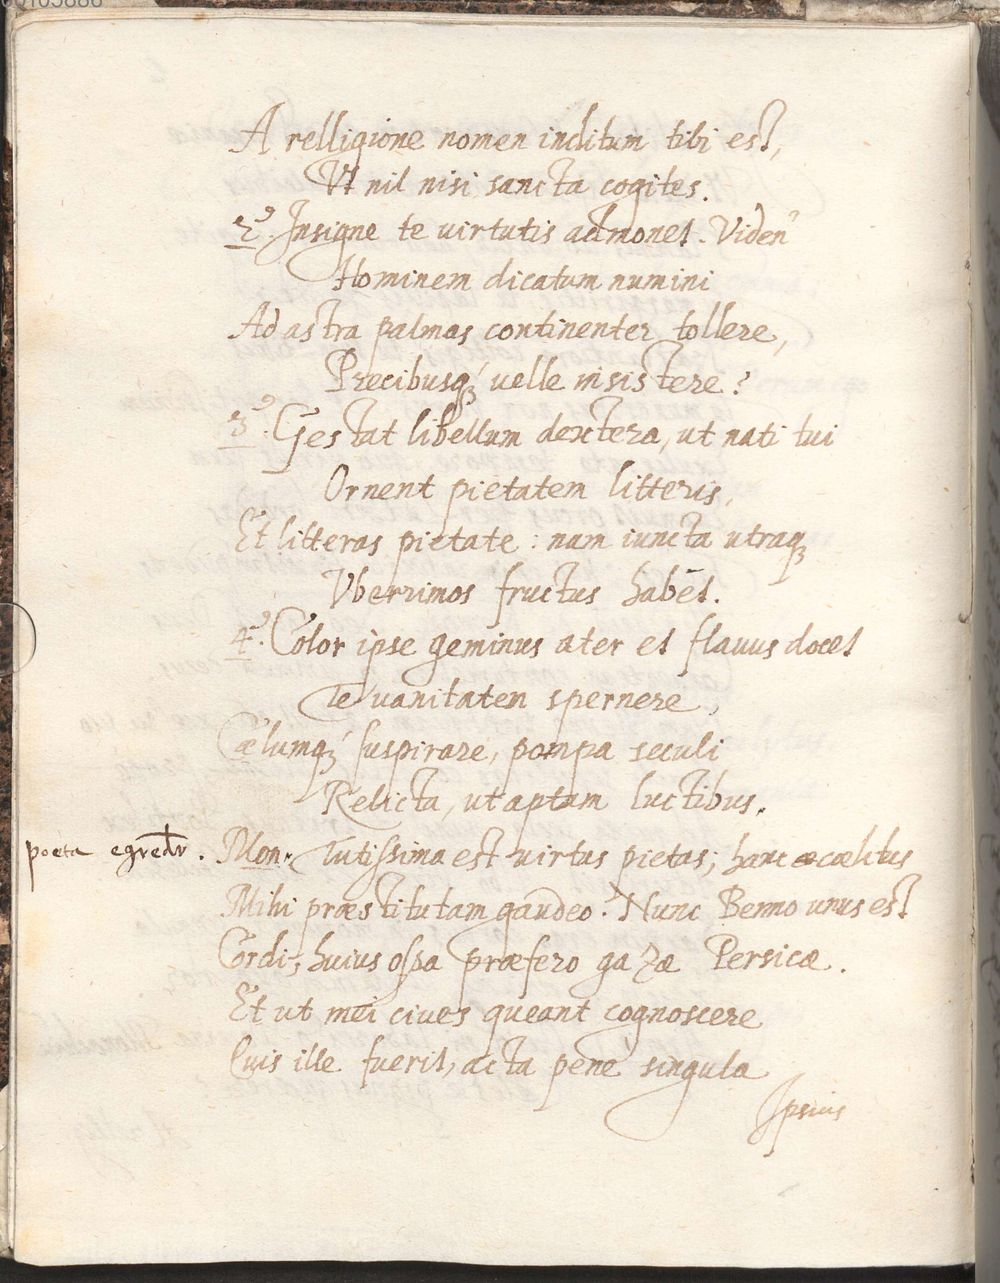 A relligione nomen inditum tibi est,
Vt nil nisi sancta cogites.
2°. Insigne te uirtutis admonet. Viden'
Hominem dicatum numini
Ad astra palmas continenter tollere,
Precibusq́; uelle insistere?
3°. Gestat libellum dextera, ut nati tui
Ornent pietatem litteris,
Et litteras pietate: nam iuncta utraq;
Vberrimos fructus habēt.
4°. Color ipse geminus ater et flauus docet
Te uanitatem spernere,
Cælumq́; suspirare, pompa seculi
Relicta, ut aptam luctibus.
poeta egredr̄. Mon. Tutissima est uirtus pietas; hanc cœlitus
Mihi præstitutam gaudeo. Nunc Benno unus est
Cordi, huius ossa præfero gazæ Persicæ.
Et ut mei ciues queant cognoscere
Quis ille fuerit, acta pene singula
Ipsius